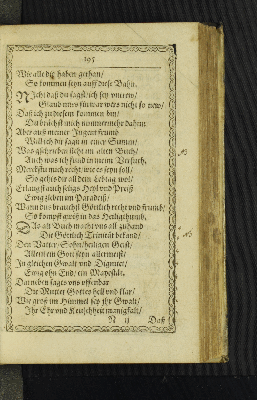 195
Wie alle die haben gethan/
So kommen seyn auff diese Bahn.
Nicht daß du sagst/ich sey untrew/
Glaub mirs fürwar wers nicht so new/
Daß ich zu diesem kommen bin/
Du brächst mich nimmermehr dahin.
Aber auß meiner Jugent
Will ich dir sagn in einer Summ/
Was gschrieben steht im alten Buch/
Auch was ich find in meim Versuch.
Merckstu mich recht/wie es seyn soll/
So gehts dir all dein Lebtag wol/
Erlangst auch seligs Heyl und Preiß
Ewig leben im Paradeiß/
Wann du's brauchst Göttlich recht und
So kompst groß in das Heiligthumb.
Das alt Buch macht uns all zuhand
Die Göttlich Trinitat bekand/
Den Vatter/Sohn/heiligen Geist/
Allein ein Gott seyn allermeist/
In gleichem Gwalt und Dignitet/
Ewig ohn End/ein Majestät.
Darneben sagts uns offenbar
Die Mutter Gottes hell und klar/
Wie groß im Himmel sey ihr Gwalt/
Ihr Ehr und Keuschheit manigfalt/
N ij Daß